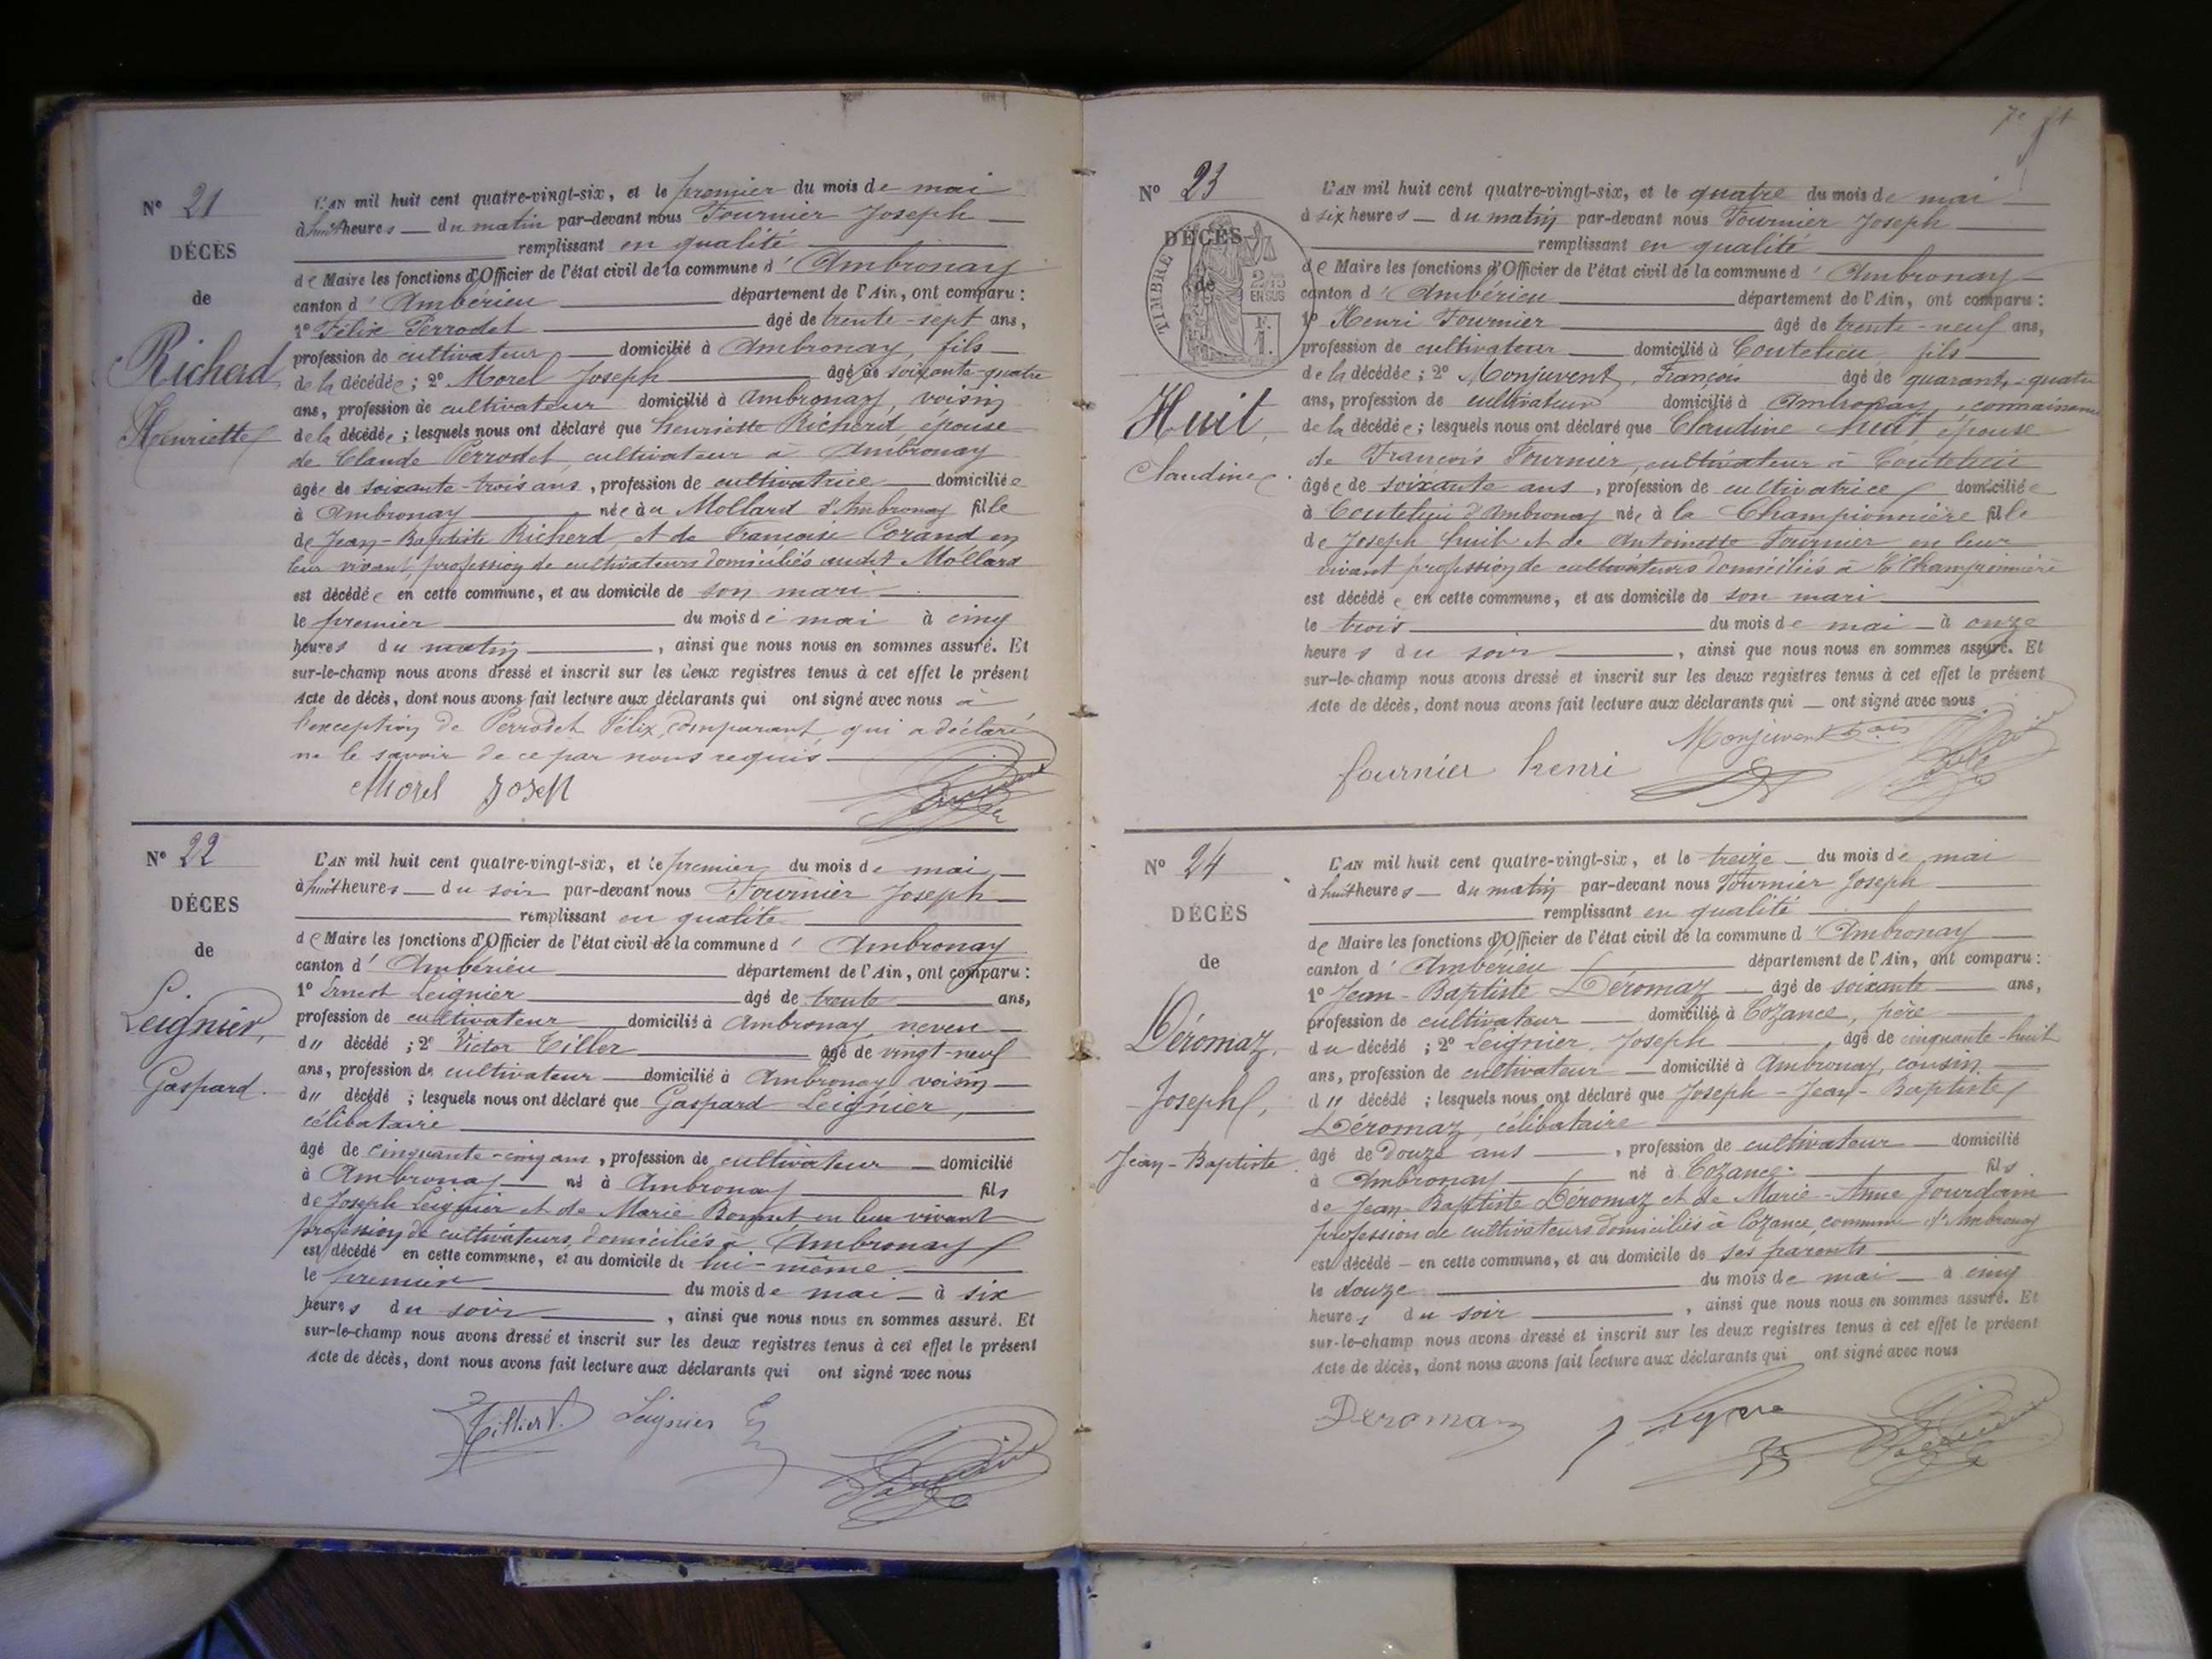 N° 21
DÉCÈS
de
Richerd
Henriette
L'AN mil huit cent quatre-vingt-six, et le premier du mois de mai
à huit heures du matin par-devant nous Fournier Joseph
remplissant en qualité
de Maire les fonctions d'Officier de l'état civil de la commune d'Ambronay
canton d'Ambérieu département de l'Ain, ont comparu :
1° Félix Perrodet âgé de trente-sept ans,
profession de cultivateur domicilié à Ambronay, fils
de la décédée ; 2° Morel Joseph âgé de soixante-quatre
ans, profession de cultivateur domicilié à Ambronay voisin
de la décédée ; lesquels nous ont déclaré que henriette Richerd, épouse
de Claude Perrodet, cultivateur à Ambronay
âgée de soixante-trois ans, profession de cultivatrice domiciliée
à Ambronay née au Mollard d'Ambronay fille
de Jean-Baptiste Richerd et de Françoise Corand en
leur vivant profession de cultivateurs domiciliés audit Mollard
est décédée en cette commune, et au domicile de son mari
le premier du mois de mai à cinq
heures du matin, ainsi que nous nous en sommes assuré. Et
sur-le-champ nous avons dressé et inscrit sur les deux registres tenus à cet effet le présent
Acte de décès, dont nous avons fait lecture aux déclarants qui ont signé avec nous à
l'exception de Perrodet Félix, comparant, qui a déclaré
ne le savoir de ce par nous requis.
Morel Joseph
N° 22
DÉCÈS
de
Leignier,
Gaspard.
L'AN mil huit cent quatre-vingt-six, et le premier du mois de mai
à huit heures du soir par-devant nous Fournier Joseph
remplissant en qualité
de Maire les fonctions d'Officier de l'état civil de la commune d'Ambronay
canton d'Ambérieu département de l'Ain, ont comparu :
1° Ernest Leignier âgé de trente ans,
profession de cultivateur domicilié à Ambronay neveu
du décédé ; 2° Victor Tiller âgé de vingt-neuf
ans, profession de cultivateur domicilié à Ambronay voisin
du décédé ; lesquels nous ont déclaré que Gaspard Leignier,
célibataire
âgé de cinquante-cinq ans, profession de cultivateur domicilié
à Ambronay né à Ambronay fils
de Joseph Leignier et de Marie Bonnet en leur vivant
profession de cultivateurs, domiciliés à Ambronay
est décédé en cette commune, et au domicile de lui-même
le premier du mois de mai à six
heures du soir, ainsi que nous nous en sommes assuré. Et
sur-le-champ nous avons dressé et inscrit sur les deux registres tenus à cet effet le présent
Acte de décès, dont nous avons fait lecture aux déclarants qui ont signé avec nous
Tillier V. Leignier E
N° 23
DÉCÈS
de
TIMBRE
Huit,
Claudine.
L'AN mil huit cent quatre-vingt-six, et le quatre du mois de mai
à six heures du matin par-devant nous Fournier Joseph
remplissant en qualité
de Maire les fonctions d'Officier de l'état civil de la commune d'Ambronay
canton d'Ambérieu département de l'Ain, ont comparu :
1° Henri Fournier âgé de trente-neuf ans,
profession de cultivateur domicilié à Coutelieu fils
de la décédée ; 2° Monjuvent, François âgé de quarante-quatre
ans, profession de cultivateur domicilié à Ambronay, connaissance
de la décédée ; lesquels nous ont déclaré que Claudine huit, épouse
de François Fournier, cultivateur à Coutelieu
âgée de soixante ans, profession de cultivatrice domiciliée
à Coutelieu d'Ambronay née à la Championnière fille
de Joseph huit et de Antoinette Fournier en leur
vivant profession de cultivateurs domiciliés à la Championnière
est décédée en cette commune, et au domicile de son mari
le trois du mois de mai à onze
heures du soir, ainsi que nous nous en sommes assuré. Et
sur-le-champ nous avons dressé et inscrit sur les deux registres tenus à cet effet le présent
Acte de décès, dont nous avons fait lecture aux déclarants qui ont signé avec nous
fournier henri Monjuvent
N° 24
DÉCÈS
de
Déromaz,
Joseph,
Jean-Baptiste.
L'AN mil huit cent quatre-vingt-six, et le treize du mois de mai
à huit heures du matin par-devant nous Fournier Joseph
remplissant en qualité
de Maire les fonctions d'Officier de l'état civil de la commune d'Ambronay
canton d'Ambérieu département de l'Ain, ont comparu :
1° Jean-Baptiste Déromaz âgé de soixante ans,
profession de cultivateur domicilié à Cozance, père
du décédé ; 2° Leignier, Joseph, âgé de cinquante-huit
ans, profession de cultivateur domicilié à Ambronay, cousin
du décédé ; lesquels nous ont déclaré que Joseph-Jean-Baptiste
Déromaz, célibataire
âgé de douze ans, profession de cultivateur domicilié
à Ambronay né à Cozance fils
de Jean-Baptiste Déromaz et de Marie-Anne Jourdain
profession de cultivateurs domiciliés à Cozance, commune d'Ambronay
est décédé en cette commune, et au domicile de ses parents
le douze du mois de mai à cinq
heures du soir, ainsi que nous nous en sommes assuré. Et
sur-le-champ nous avons dressé et inscrit sur les deux registres tenus à cet effet le présent
Acte de décès, dont nous avons fait lecture aux déclarants qui ont signé avec nous
Deromaz